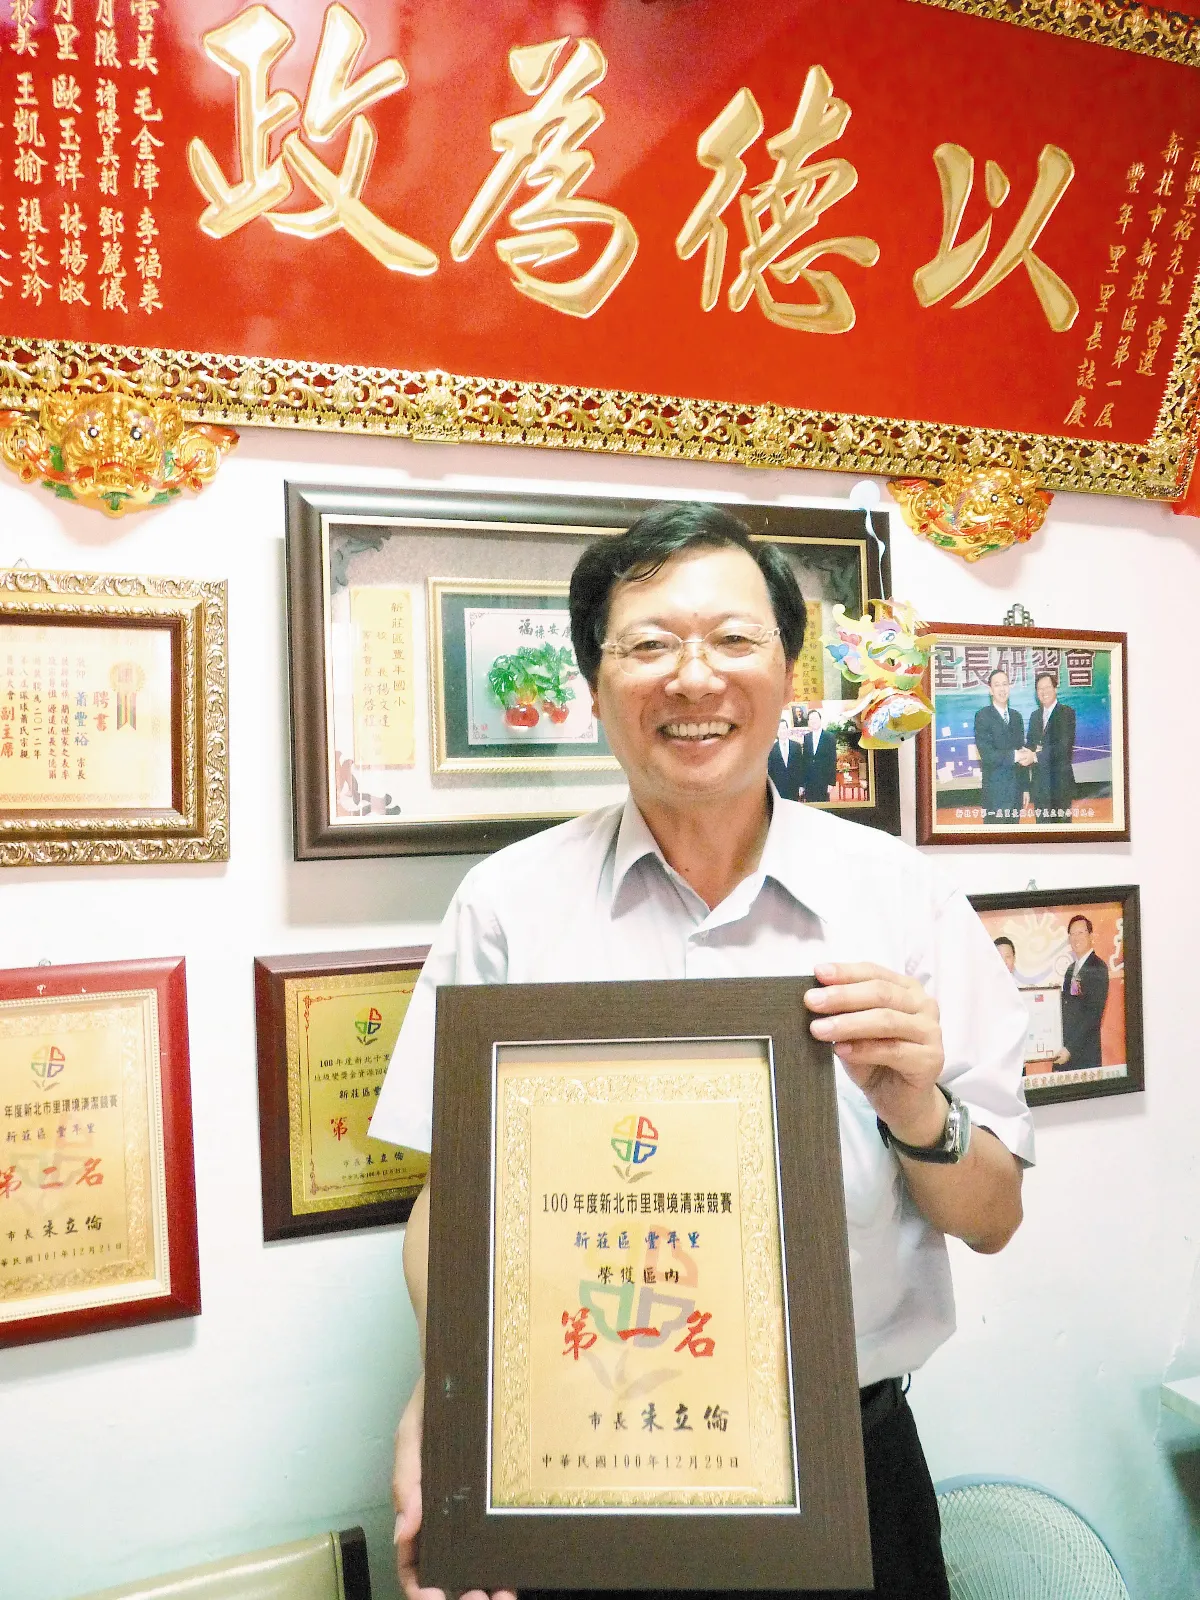 以德為政
蕭豐裕先生 當選
新北市新莊區第一屆
豐年里里長誌慶
雪美 毛金津 李福来
月照 褚陳美莉 鄧麗儀
月里 歐玉祥 林楊淑
秋美 王凱榆 張永珍
聘書
蕭豐裕 宗長
副主席
新莊區豐年國小
校長 楊文達
家長會長
福祿安康
里長研習會
新北市第一屆里長與市長立倫合影紀念
年度新北市里環境清潔競賽
新莊區 豐年里
第二名
市長 朱立倫
華民國101年12月21日
100年度新北十里
垃圾變黃金資源回收
新莊區豐
第
市長 朱立倫
100年度新北市里環境清潔競賽
新莊區 豐年里
榮獲區內
第一名
市長 朱立倫
中華民國100年12月29日